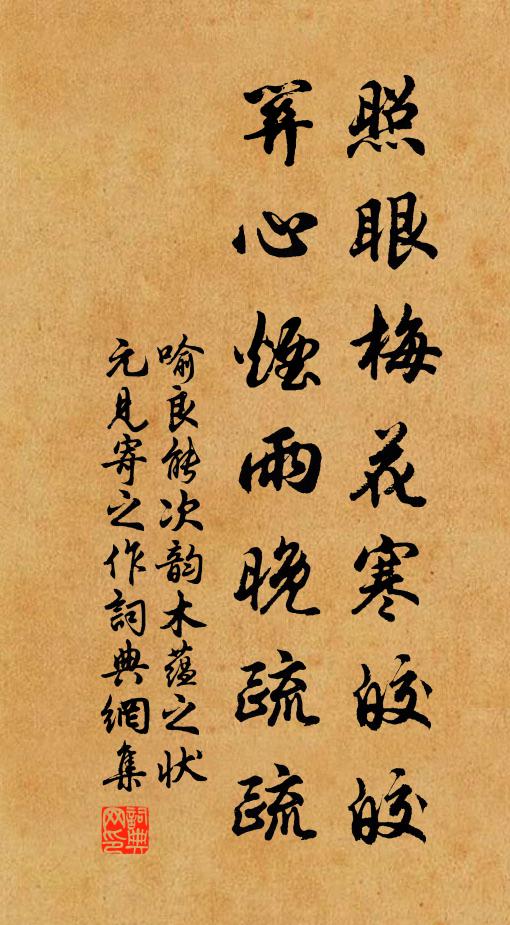 照眼梅花寒皎皎
關心煙雨晚疏疏
喻良能次韵木蘊之状
元見寄之作詞典網集
詞典网印